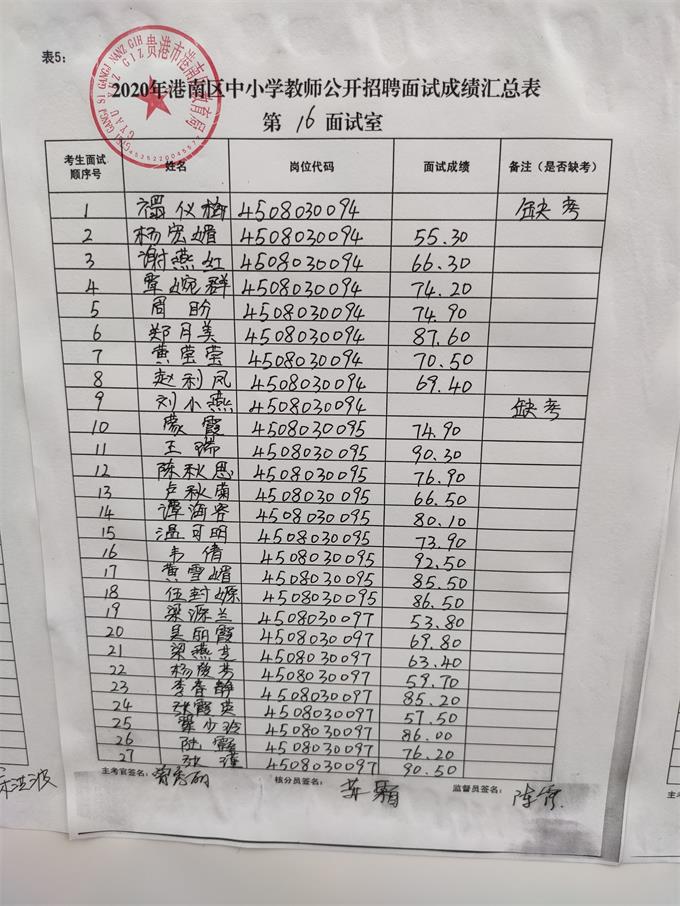 表5：
贵港市港南区教育局
4525220045577
2020年港南区中小学教师公开招聘面试成绩汇总表
第 16 面试室
考生面试顺序号 姓名 岗位代码 面试成绩 备注（是否缺考）
1 仪梅 4508030094 缺考
2 杨宏媚 4508030094 55.30
3 谢燕红 4508030094 66.30
4 覃婉群 4508030094 74.20
5 周盼 4508030094 74.90
6 郑月美 4508030094 87.60
7 黄莹莹 4508030094 70.50
8 赵利凤 4508030094 69.40
9 刘小燕 4508030094 缺考
10 蒙霞 4508030095 74.90
11 王瑞 4508030095 90.30
12 陈秋思 4508030095 76.90
13 卢秋菊 4508030095 66.50
14 谭海容 4508030095 80.10
15 温可明 4508030095 73.90
16 韦倩 4508030095 92.50
17 黄雪媚 4508030095 85.50
18 伍封嫄 4508030095 86.50
19 梁源兰 4508030097 53.80
20 吴丽霞 4508030097 69.80
21 梁燕芝 4508030097 63.40
22 杨俊芳 4508030097 59.70
23 李春静 4508030097 85.20
24 张霞英 4508030097 57.50
25 覃少玲 4508030097 86.00
26 陆霞 4508030097 76.20
27 4508030097 90.50
主考官签名： 核分员签名： 监督员签名：